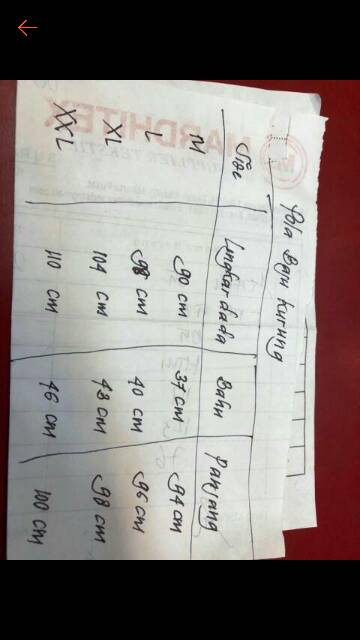 Pola Baju Kurung
Size Lingkar dada Bahu Panjang
M 90 cm 37 cm 94 cm
L 98 cm 40 cm 96 cm
XL 104 cm 43 cm 98 cm
XXL 110 cm 46 cm 100 cm
MARDHITEX
SUPPLIER TEKSTIL